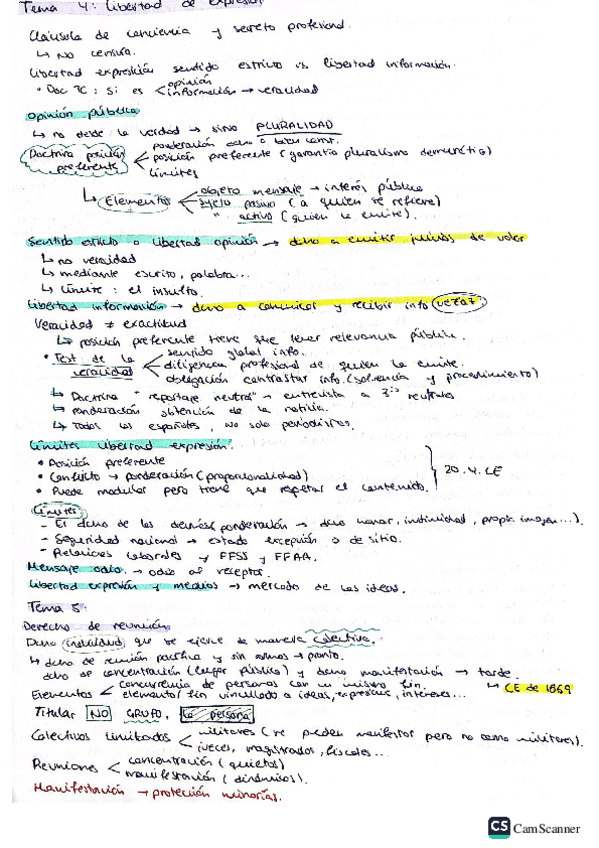 Tema 4: Libertad de expresión
Cláusula de conciencia y secreto profesional.
↳ No censura.
Libertad expresión sentido estricto vs libertad información.
• Doc TC: Si es < opinión
información → veracidad
Opinión pública
↳ no desde la verdad → sino PLURALIDAD
Doctrina posición preferente < ponderación dcho o bien const.
posición preferente (garantía pluralismo democrático)
límites
↳ Elementos < objeto mensaje → interés público
sujeto pasivo (a quien se refiere)
" activo (quien lo emite).
Sentido estricto o libertad opinión → dcho a emitir juicios de valor
↳ no veracidad
↳ mediante escrito, palabra...
↳ Límite: el insulto.
Libertad información → dcho a comunicar y recibir info veraz
Veracidad ≠ exactitud
↳ posición preferente tiene que tener relevancia pública.
• Test de la veracidad < sentido global info.
diligencia profesional de quien la emite.
obligación contrastar info. (solvencia y procedimiento)
↳ Doctrina "reportaje neutral" → entrevista a 3ºs neutrales
↳ ponderación obtención de la noticia.
↳ Todos los españoles, no solo periodistas.
Límites libertad expresión.
• Posición preferente
• Conflicto → ponderación (proporcionalidad)
• Puede modular pero tiene que respetar el contenido.
} 20.4. CE
Límites
- El dcho de los demás (ponderación → dcho honor, intimidad, propia imagen...).
- Seguridad nacional → estado excepción o de sitio.
- Relaciones laborales y FFSS y FFAA.
Mensaje odio. → odio al receptor.
Libertad expresión y medios → mercado de las ideas.
Tema 5:
Derecho de reunión
Dcho individual que se ejerce de manera colectiva.
↳ dcho de reunión pacífica y sin armas → pronto.
dcho de concentración (lugar público) y dcho manifestación → tarde.
↳ CE de 1869
Elementos < concurrencia de personas con un mismo fin.
elemental fin vinculado a ideas, expresar, intereses...
Titular NO GRUPO, la persona
Colectivos limitados < militares (se pueden manifestar pero no como militares).
jueces, magistrados, fiscales...
Reuniones < concentración (quietos)
manifestación (dinámicos).
Manifestación → protección minorías.
CS CamScanner